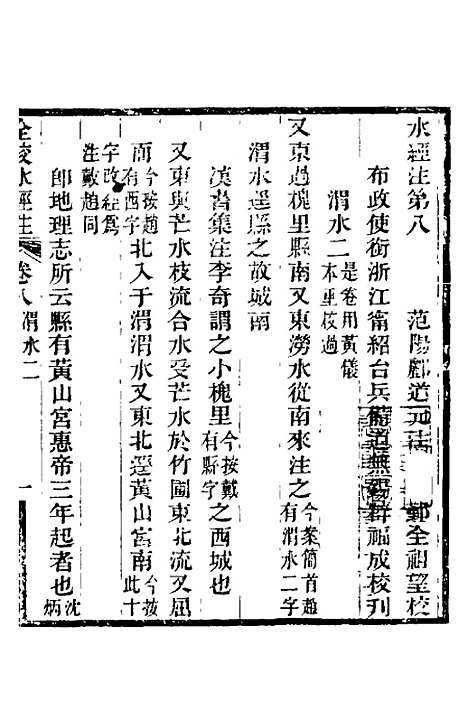 水經注第八　范陽酈道元注　鄞全祖望校
布政使銜浙江甯紹台兵備道無錫薛福成校刊
渭水二 是卷用黃儀本重校過
又東過槐里縣南又東澇水從南來注之 今案簡首趙有渭水二字
渭水逕縣之故城南
漢書集注李奇謂之小槐里 今按戴有縣字 之西城也
又東與芒水枝流合水受芒水於竹圃東北流又屈
而 今按趙有西字 北入于渭渭水又東北逕黃山宮南 今按此十
字改經爲注戴趙同
卽地理志所云縣有黃山宮惠帝三年起者也 沈炳
全校水經注 卷八 渭水二 一